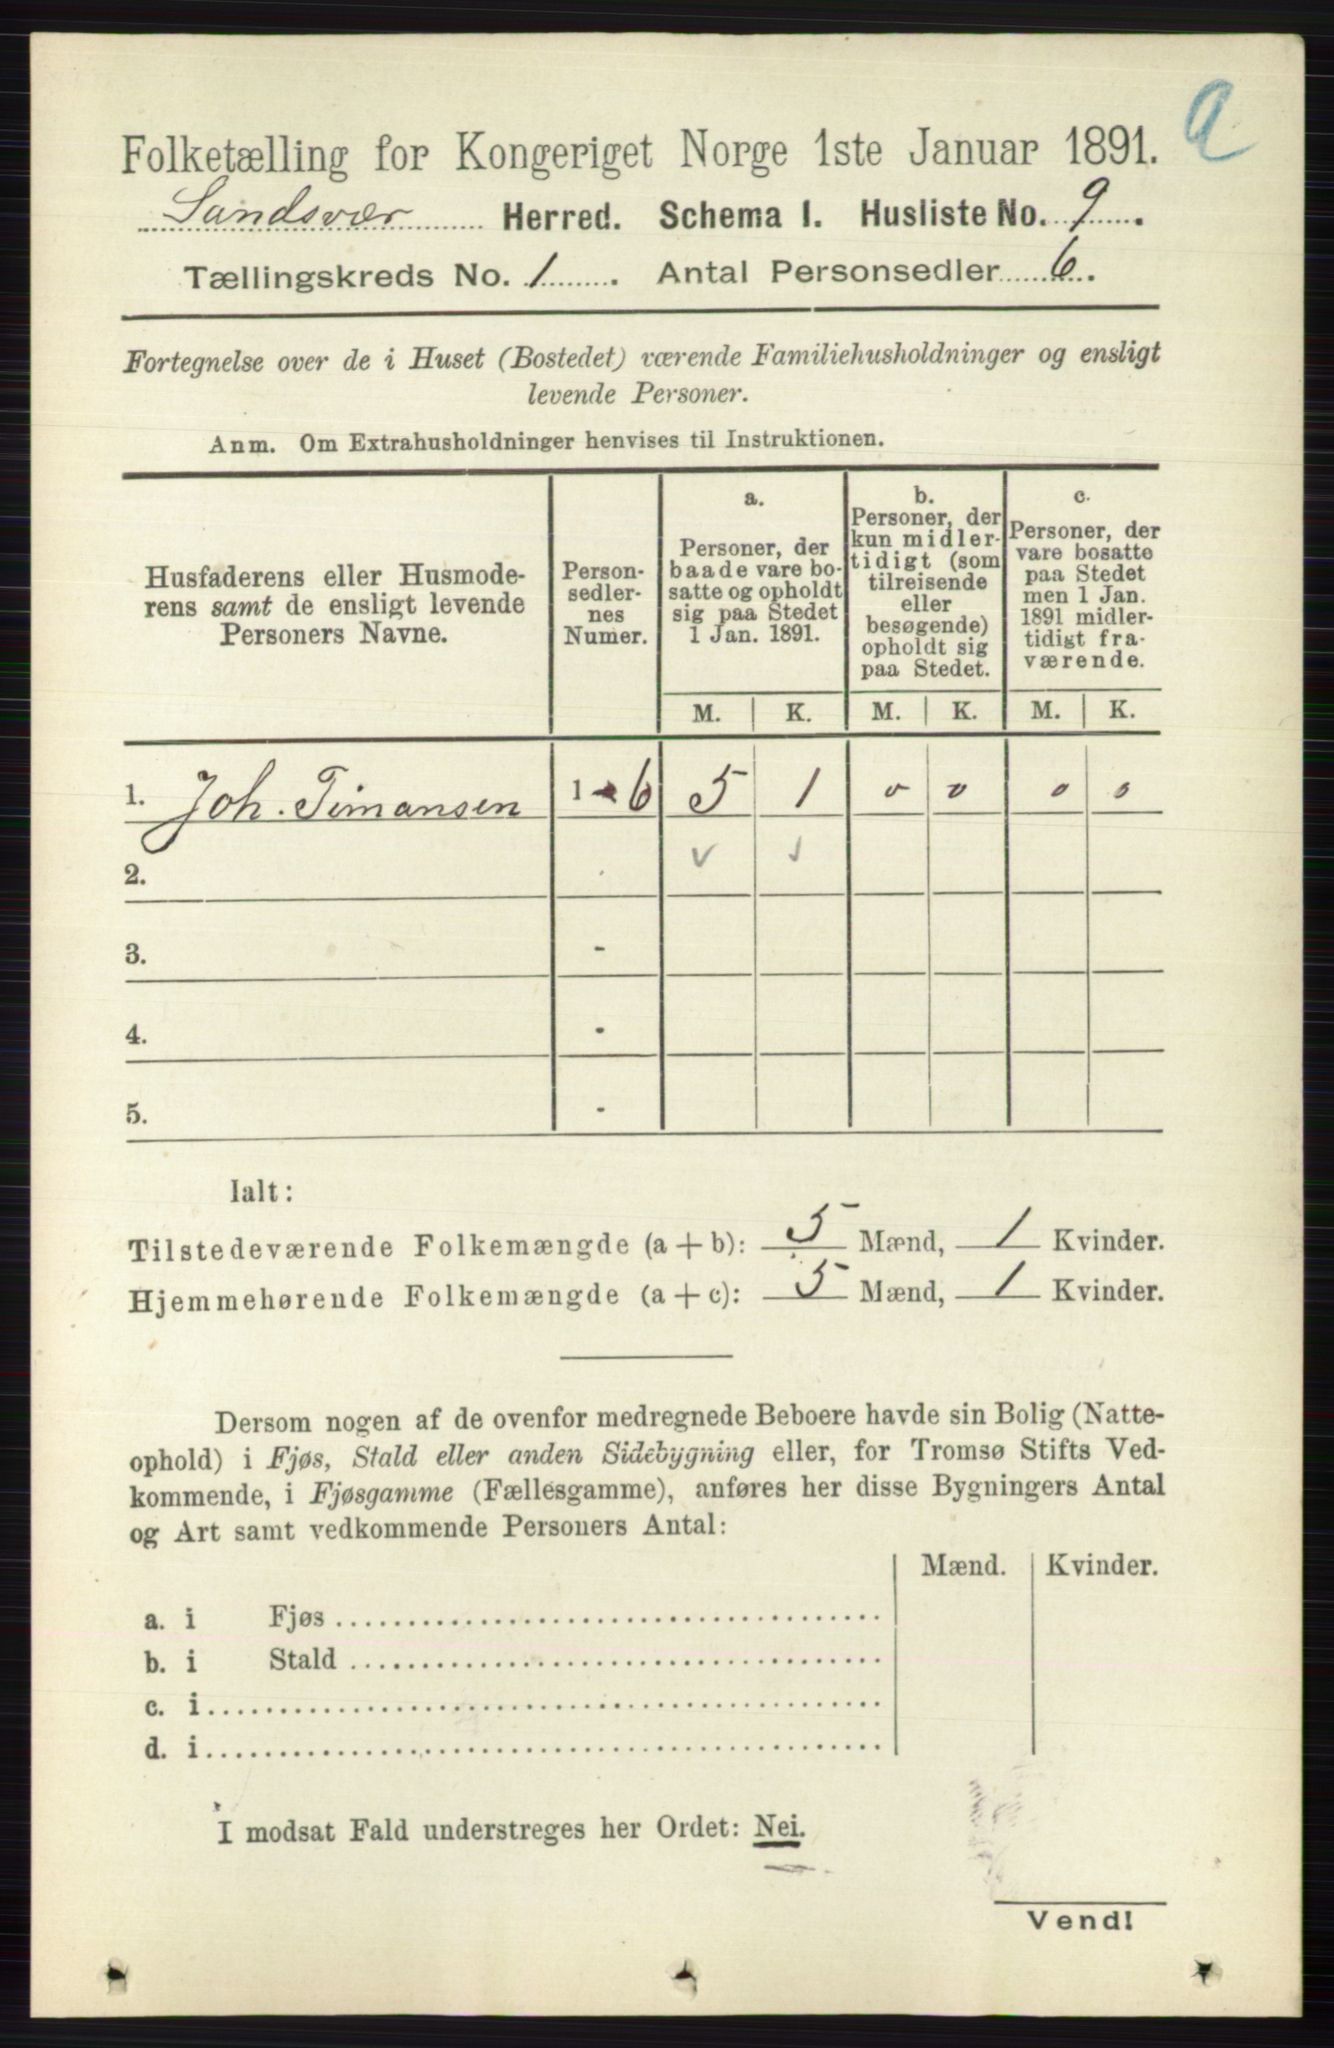 9
Folketælling for Kongeriget Norge 1ste Januar 1891.
Sandsvær Herred. Schema I. Husliste No. 9.
Tællingskreds No. 1. Antal Personsedler 6.
Fortegnelse over de i Huset (Bostedet) værende Familiehusholdninger og ensligt
levende Personer.
Anm. Om Extrahusholdninger henvises til Instruktionen.
Husfaderens eller Husmode-
rens samt de ensligt levende
Personers Navne.
Person-
sedler-
nes
Numer.
a.
Personer, der
baade vare bo-
satte og opholdt
sig paa Stedet
1 Jan. 1891.
b.
Personer, der
kun midler-
tidigt (som
tilreisende
eller
besøgende)
opholdt sig
paa Stedet.
c.
Personer, der
vare bosatte
paa Stedet
men 1 Jan.
1891 midler-
tidigt fra-
værende.
M. K. M. K. M. K.
1. Joh. Timansen 1-6 5 1 0 0 0 0
2.
3. -
4. -
5. -
Ialt:
Tilstedeværende Folkemængde (a + b): 5 Mænd, 1 Kvinder.
Hjemmehørende Folkemængde (a + c): 5 Mænd, 1 Kvinder.
Dersom nogen af de ovenfor medregnede Beboere havde sin Bolig (Natte-
ophold) i Fjøs, Stald eller anden Sidebygning eller, for Tromsø Stifts Ved-
kommende, i Fjøsgamme (Fællesgamme), anføres her disse Bygningers Antal
og Art samt vedkommende Personers Antal:
Mænd. Kvinder.
a. i Fjøs
b. i Stald
c. i
d. i
I modsat Fald understreges her Ordet: Nei.
Vend!